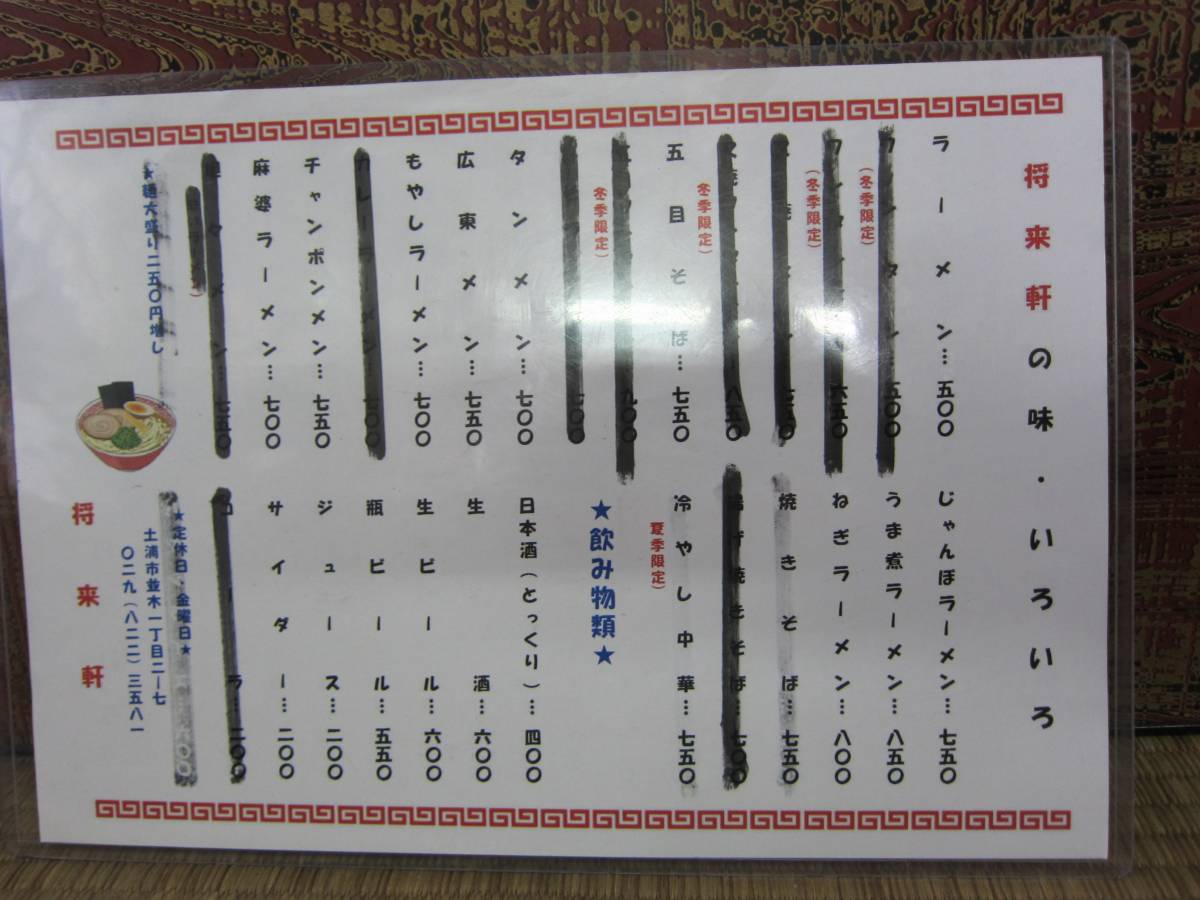 将来軒の味・いろいろ
ラーメン…五〇〇
(冬季限定)
(冬季限定)
冬季限定)
五目そば…七五〇
冬季限定)
タンメン…七〇〇
広東メン…七五〇
もやしラーメン…七〇〇
カレーラーメン…七〇〇
チャンポンメン…七五〇
麻婆ラーメン…七〇〇
★麺大盛り二五〇円増し
じゃんぼラーメン…七五〇
うま煮ラーメン…八五〇
ねぎラーメン…八〇〇
焼きそば…七五〇
揚げ焼きそば…七〇〇
冷やし中華…七五〇
夏季限定)
★飲み物類★
日本酒(とっくり)…四〇〇
生酒…六〇〇
生ビール…六〇〇
瓶ビール…五五〇
ジュース…二〇〇
サイダー…二〇〇
コーラ…二〇〇
★定休日・金曜日★
土浦市並木一丁目二ー七
〇二九(八二二)三五八一
将来軒